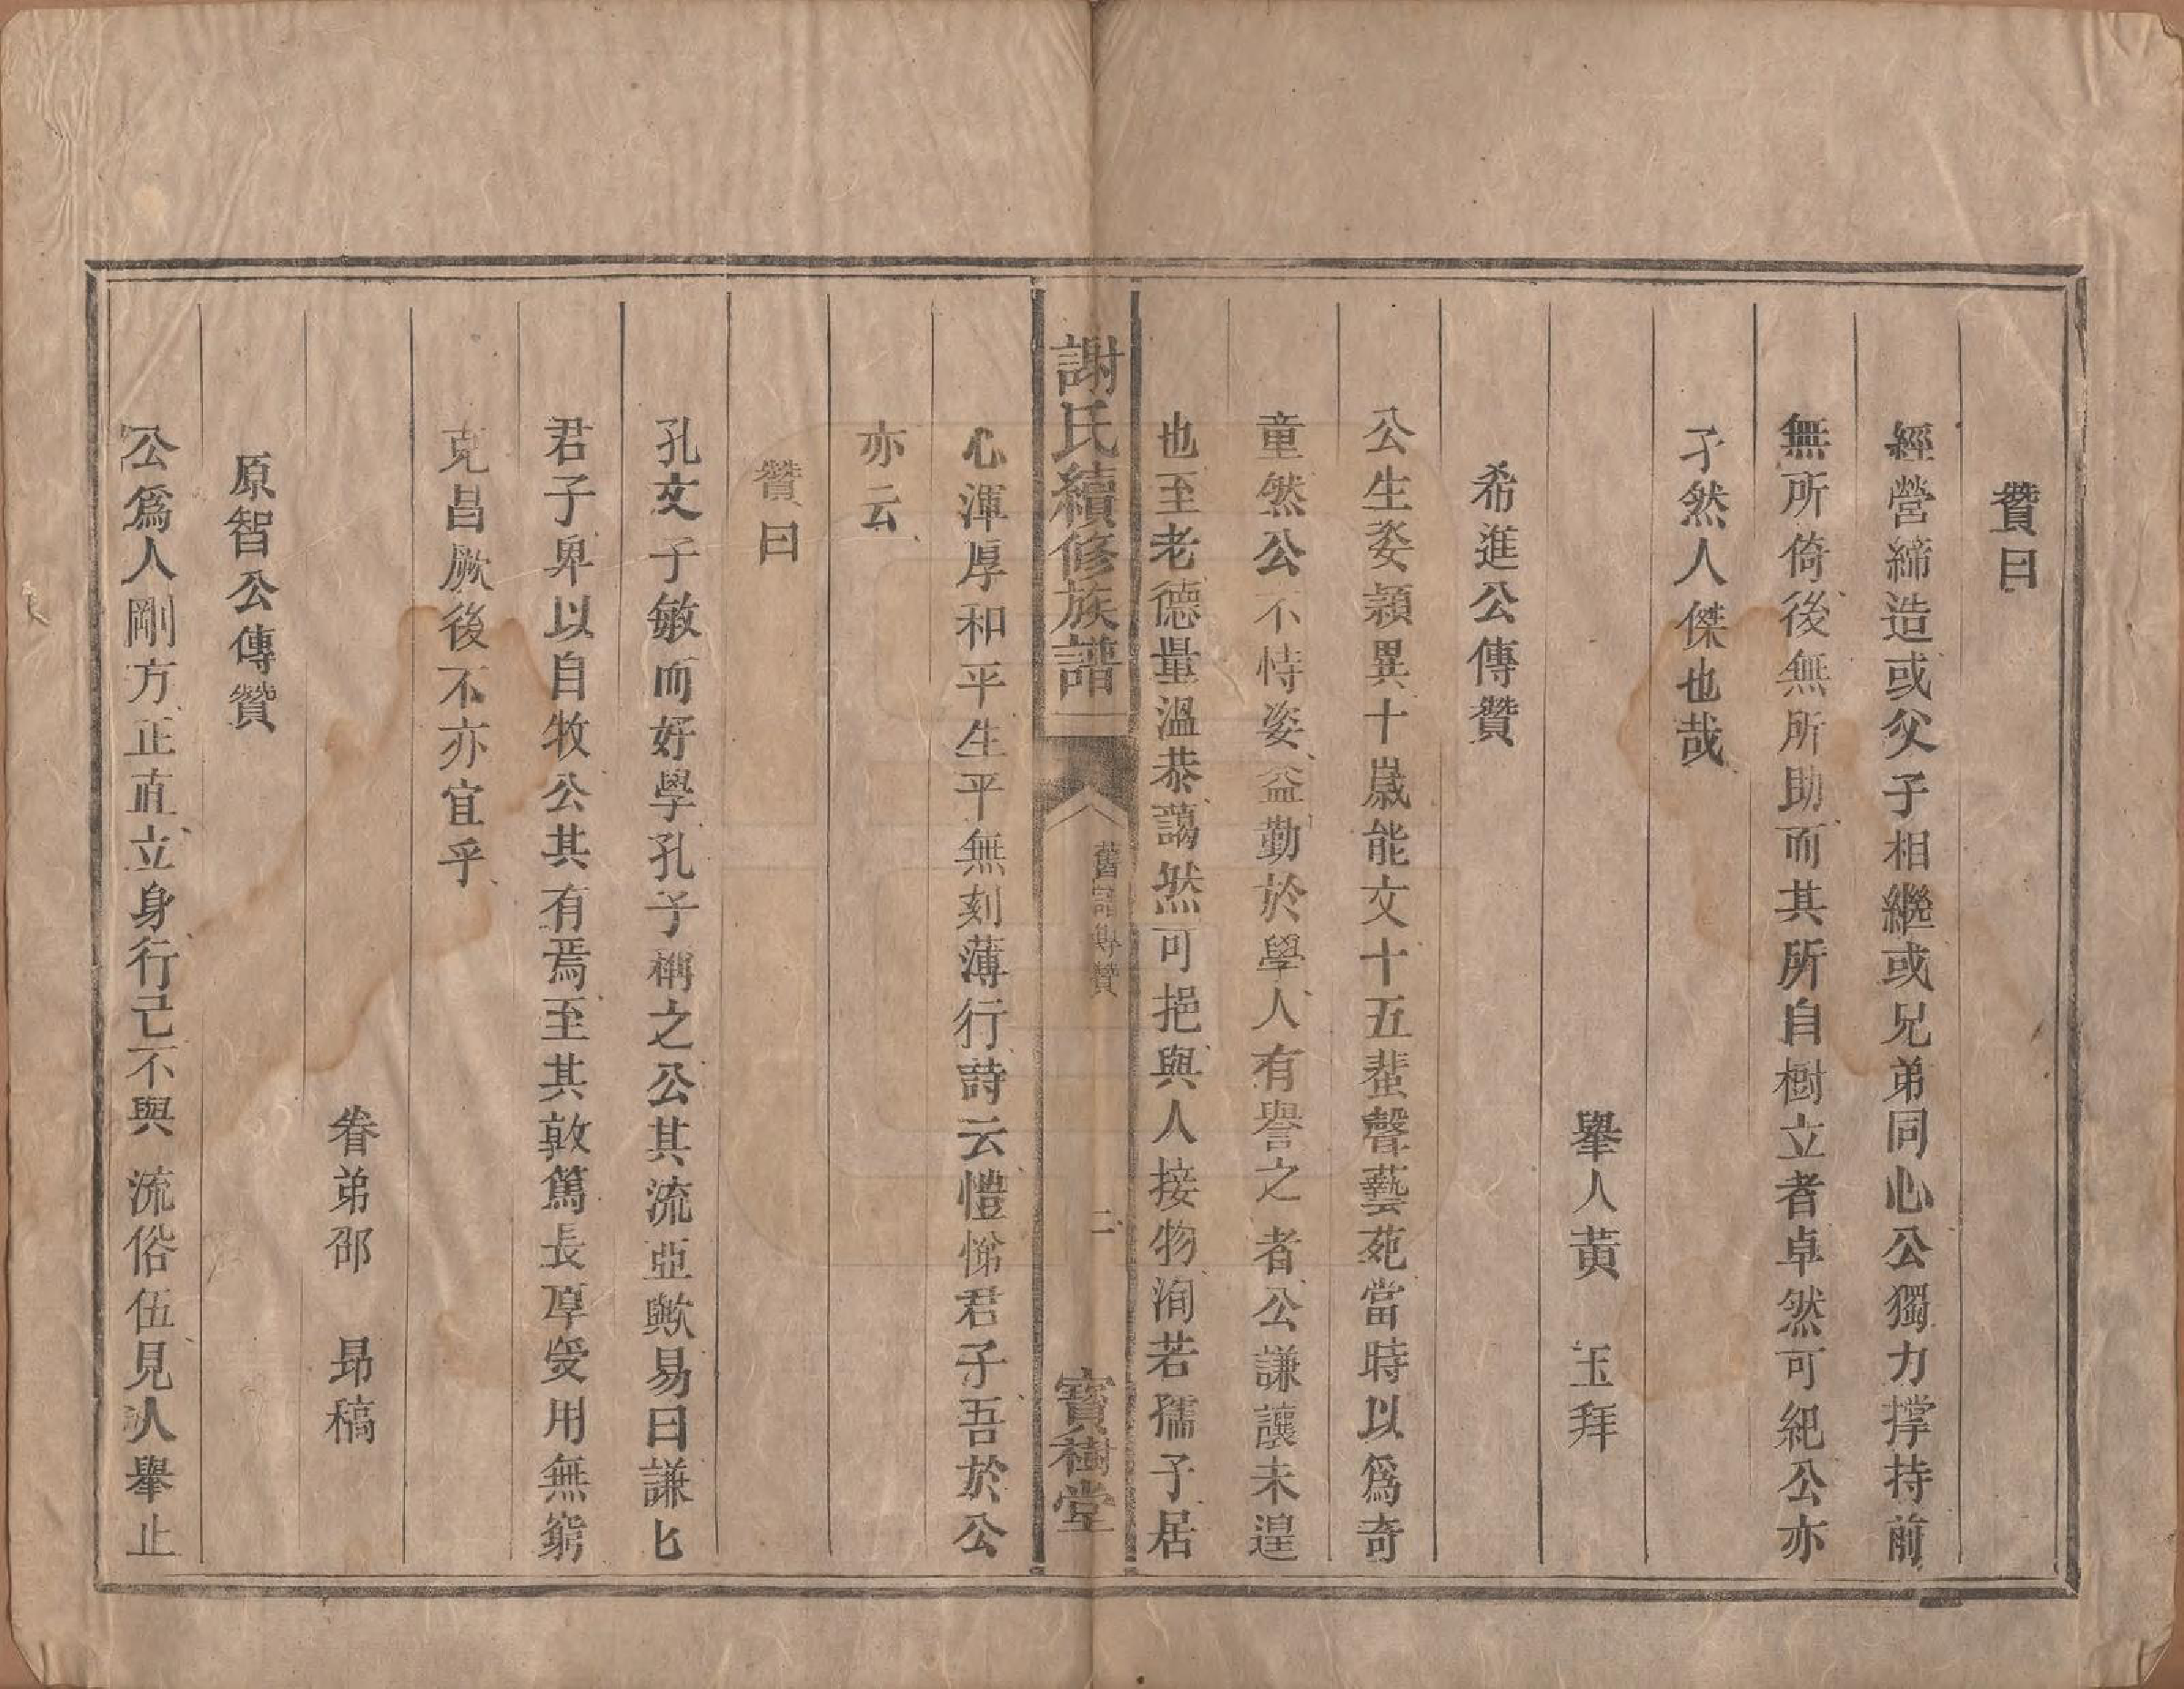 贊曰
經營締造或父子相繼或兄弟同心公獨力撐持前
無所倚後無所助而其所自樹立者卓然可紀公亦
孑然人傑也哉
舉人黃　玉拜
希進公傳贊
公生姿穎異十歲能文十五蜚聲藝苑當時以爲奇
童然公不恃姿益勤於學人有譽之者公謙讓未遑
也至老德量溫恭藹然可挹與人接物洵若孺子居
謝氏續修族譜
舊譜傳贊
二
寶樹堂
心渾厚和平生平無刻薄行詩云愷悌君子吾於公
亦云
贊曰
孔文子敏而好學孔子稱之公其流亞歟易曰謙匕
君子卑以自牧公其有焉至其敦篤長厚受用無窮
克昌厥後不亦宜乎
眷弟邵　昻稿
原智公傳贊
公爲人剛方正直立身行己不與流俗伍見人舉止